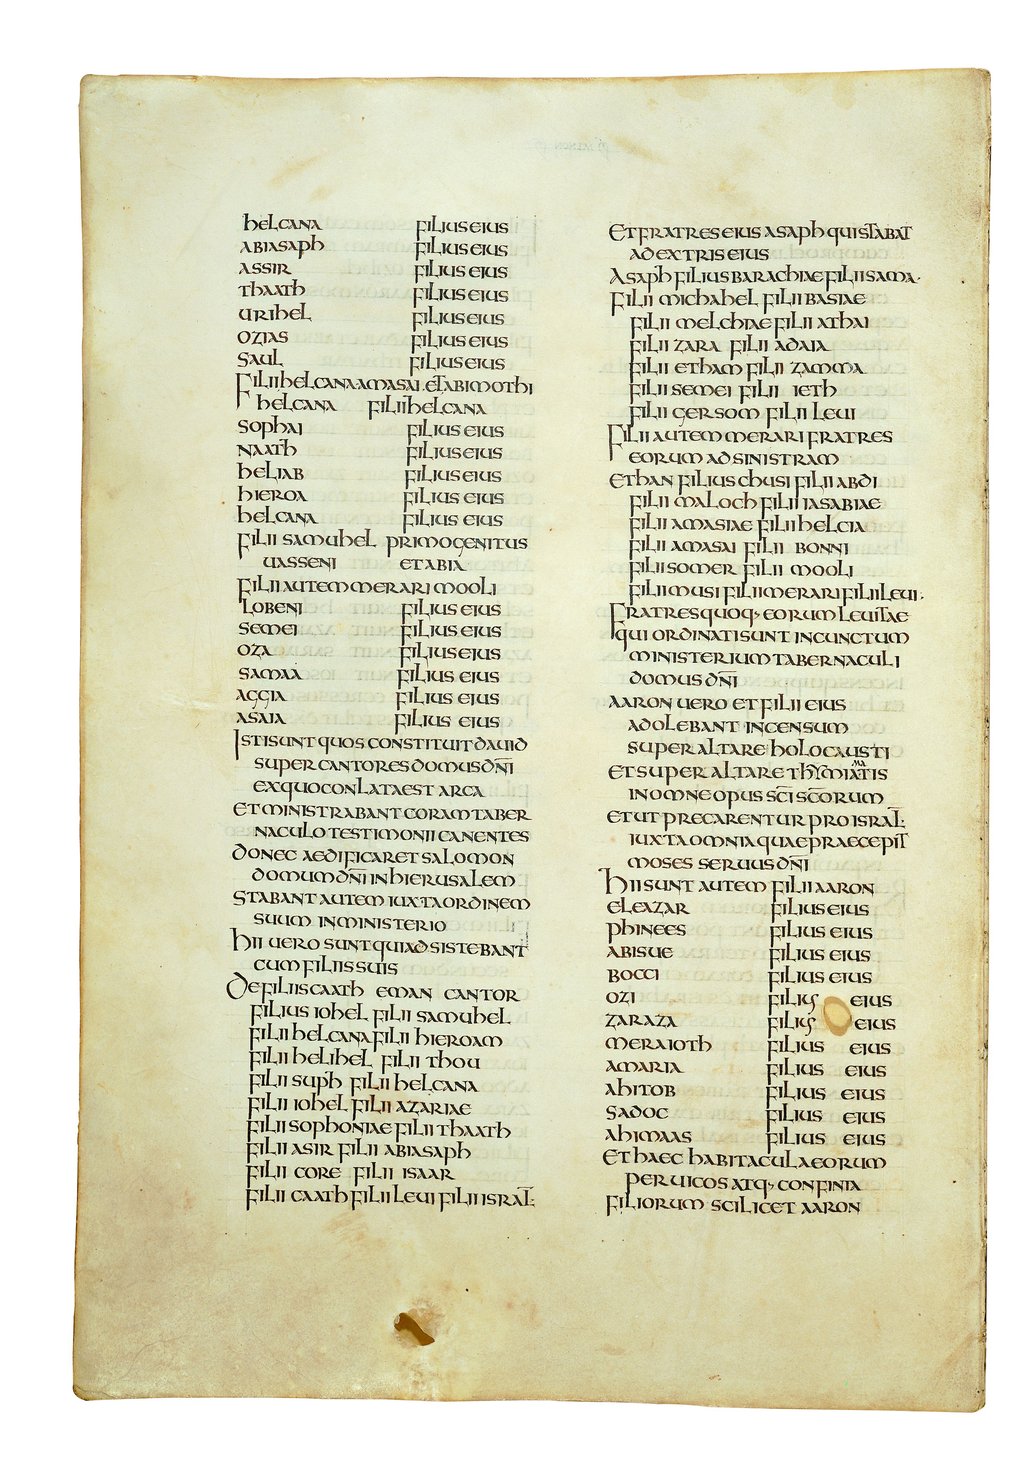 helcana filius eius
abiasaph filius eius
assir filius eius
thaath filius eius
urihel filius eius
ozias filius eius
saul filius eius
Filii helcana amasai et abimothi
helcana filii helcana
sophai filius eius
naath filius eius
heliab filius eius
hieroa filius eius
helcana filius eius
filii samuhel primogenitus
uasseni et abia
filii autem merari mooli
lobeni filius eius
semei filius eius
oza filius eius
samaa filius eius
aggia filius eius
asaia filius eius
Isti sunt quos constituit dauid
super cantores domus dn̄i
ex quo conlata est arca
et ministrabant coram taber
naculo testimonii canentes
donec aedificaret salomon
domum dn̄i in hierusalem
stabant autem iuxta ordinem
suum in ministerio
hii uero sunt qui adsistebant
cum filiis suis
De filiis caath eman cantor
filius iohel filii samuhel
filii helcana filii hieroam
filii helihel filii thou
filii suph filii helcana
filii iohel filii azariae
filii sophoniae filii thaath
filii asir filii abiasaph
filii core filii isaar
filii caath filii leui filii isral̄:
Et fratres eius asaph qui stabat
ad extris eius
Asaph filius barachiae filii sama·
filii michahel filii basiae
filii melchiae filii athai
filii zara filii adaia
filii etham filii zamma
filii semei filii ieth
filii gersom filii leui
Filii autem merari fratres
eorum ad sinistram
ethan filius chusi filii abdi
filii maloch filii iasabiae
filii amasiae filii helcia
filii amasai filii bonni
filii somer filii mooli
filii musi filii merari filii leui·
Fratres quoq· eorum leuitae
qui ordinati sunt in cunctum
ministerium tabernaculi
domus dn̄i
aaron uero et filii eius
adolebant incensum
super altare holocausti
et super altare thymiamatis
in omne opus sc̄i sc̄orum
et ut precarentur pro isral̄:
iuxta omnia quae praecepit
moses seruus dn̄i
hii sunt autem filii aaron
eleazar filius eius
phinees filius eius
abisue filius eius
bocci filius eius
ozi filius eius
zaraza filius eius
meraioth filius eius
amaria filius eius
ahitob filius eius
sadoc filius eius
ahimaas filius eius
et haec habitacula eorum
per uicos atq· confinia
filiorum scilicet aaron